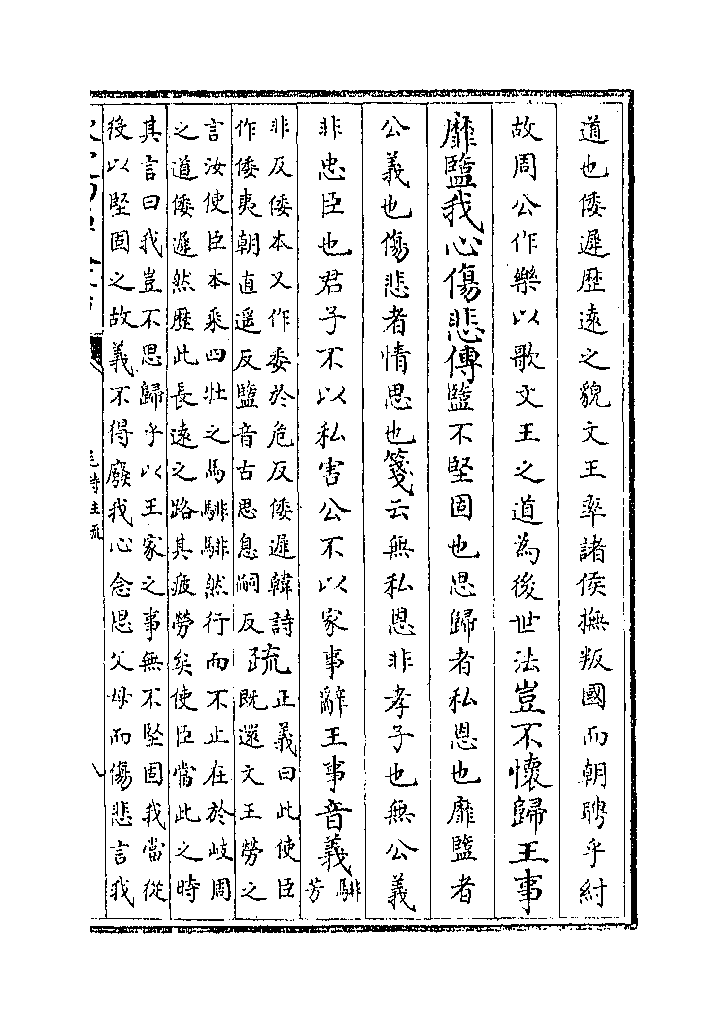 道也倭遲歴逺之貌文王率諸侯撫叛國而朝聘乎紂
故周公作樂以歌文王之道為後世法豈不懷歸王事
靡盬我心傷悲傳盬不堅固也思歸者私恩也靡盬者
公義也傷悲者情思也箋云無私恩非孝子也無公義
非忠臣也君子不以私害公不以家事辭王事音義騑芳
非反倭本又作委於危反倭遲韓詩
作倭夷朝直遥反盬音古思息嗣反
疏正義曰此使臣
既還文王勞之
言汝使臣本乘四牡之馬騑騑然行而不止在於岐周
之道倭遲然歴此長逺之路其疲勞矣使臣當此之時
其言曰我豈不思歸乎以王家之事無不堅固我當從
後以堅固之故義不得廢我心念思父母而傷悲言我
毛詩注疏
八